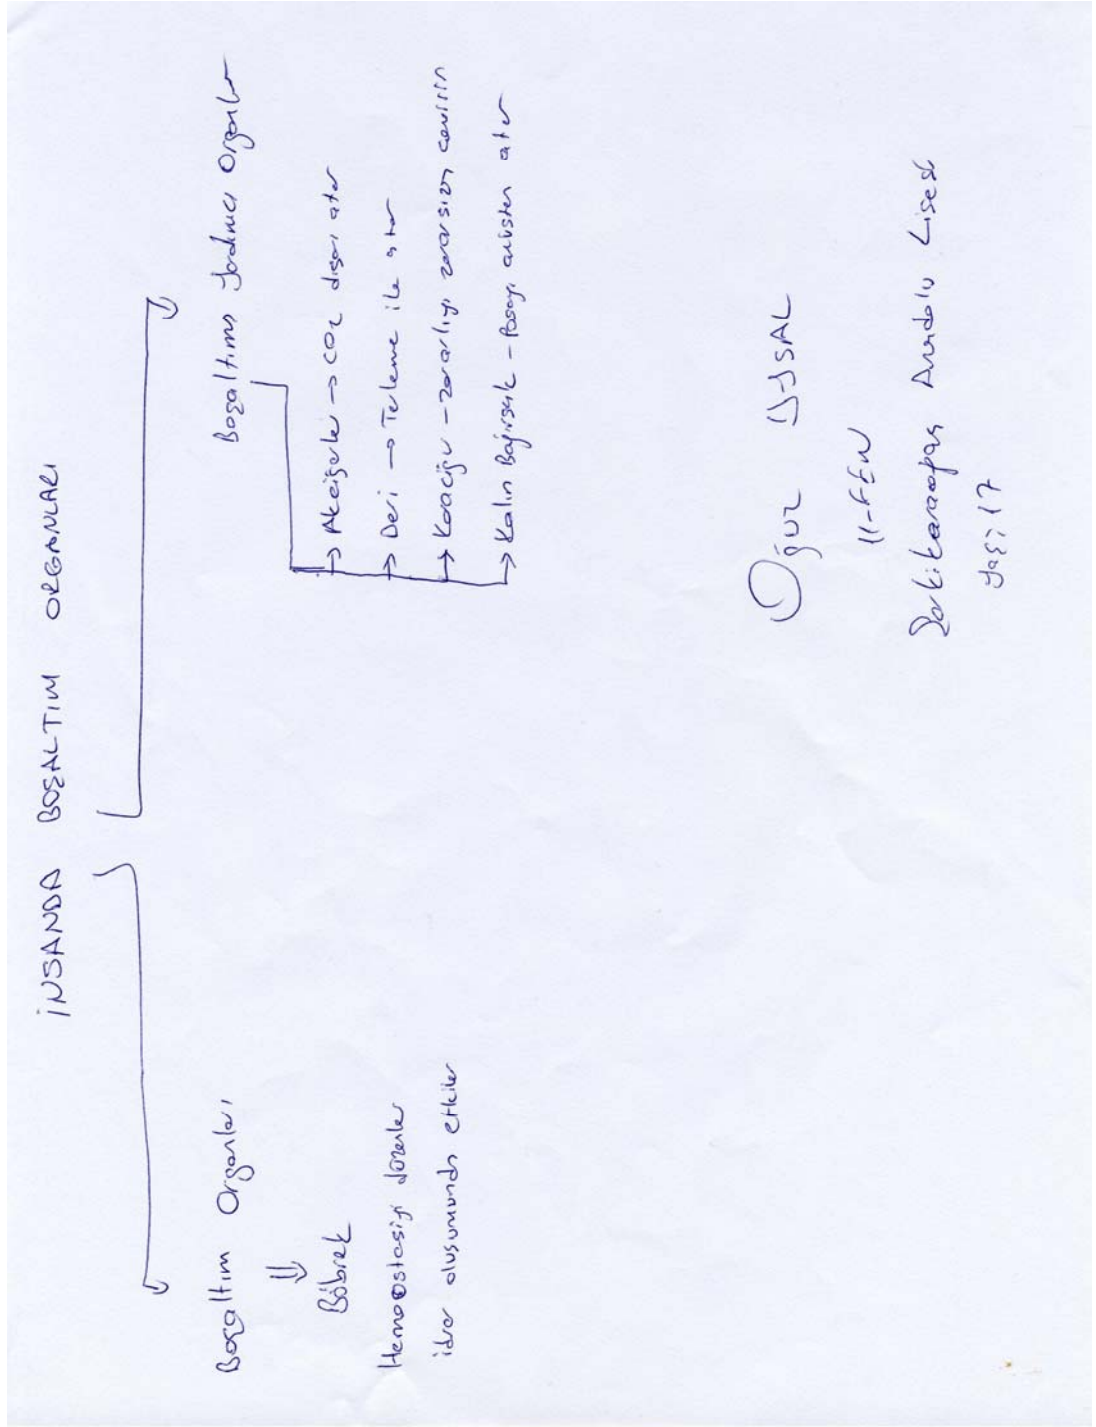 İNSANDA BOŞALTIM ORGANLARI
Boşaltım Organları
⇓
Böbrek
Hemoostasiyi düzenler
idrar oluşumunda etkiler
Boşaltıma Yardımcı Organlar
→ Akciğerler → CO2 dışarı atar
→ Deri → Terleme ile atar
→ Karaciğer - zararlıyı zararsıza çevirir
→ Kalın Bağırsak - Posayı anüsten atar
Oğuz UYSAL
11-FEN
Anadolu Lisesi
Yaş: 17